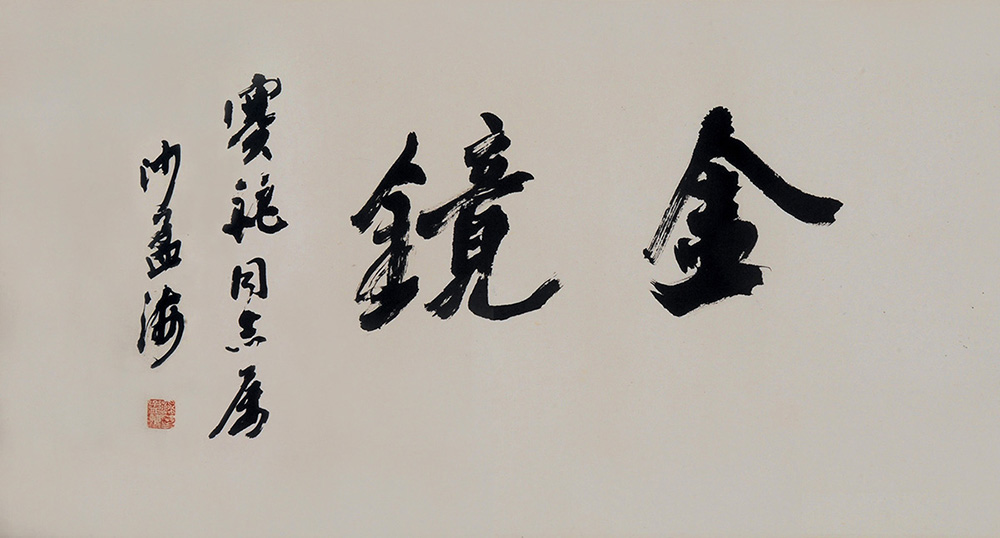 金鏡
賽龍同志属
沙孟海